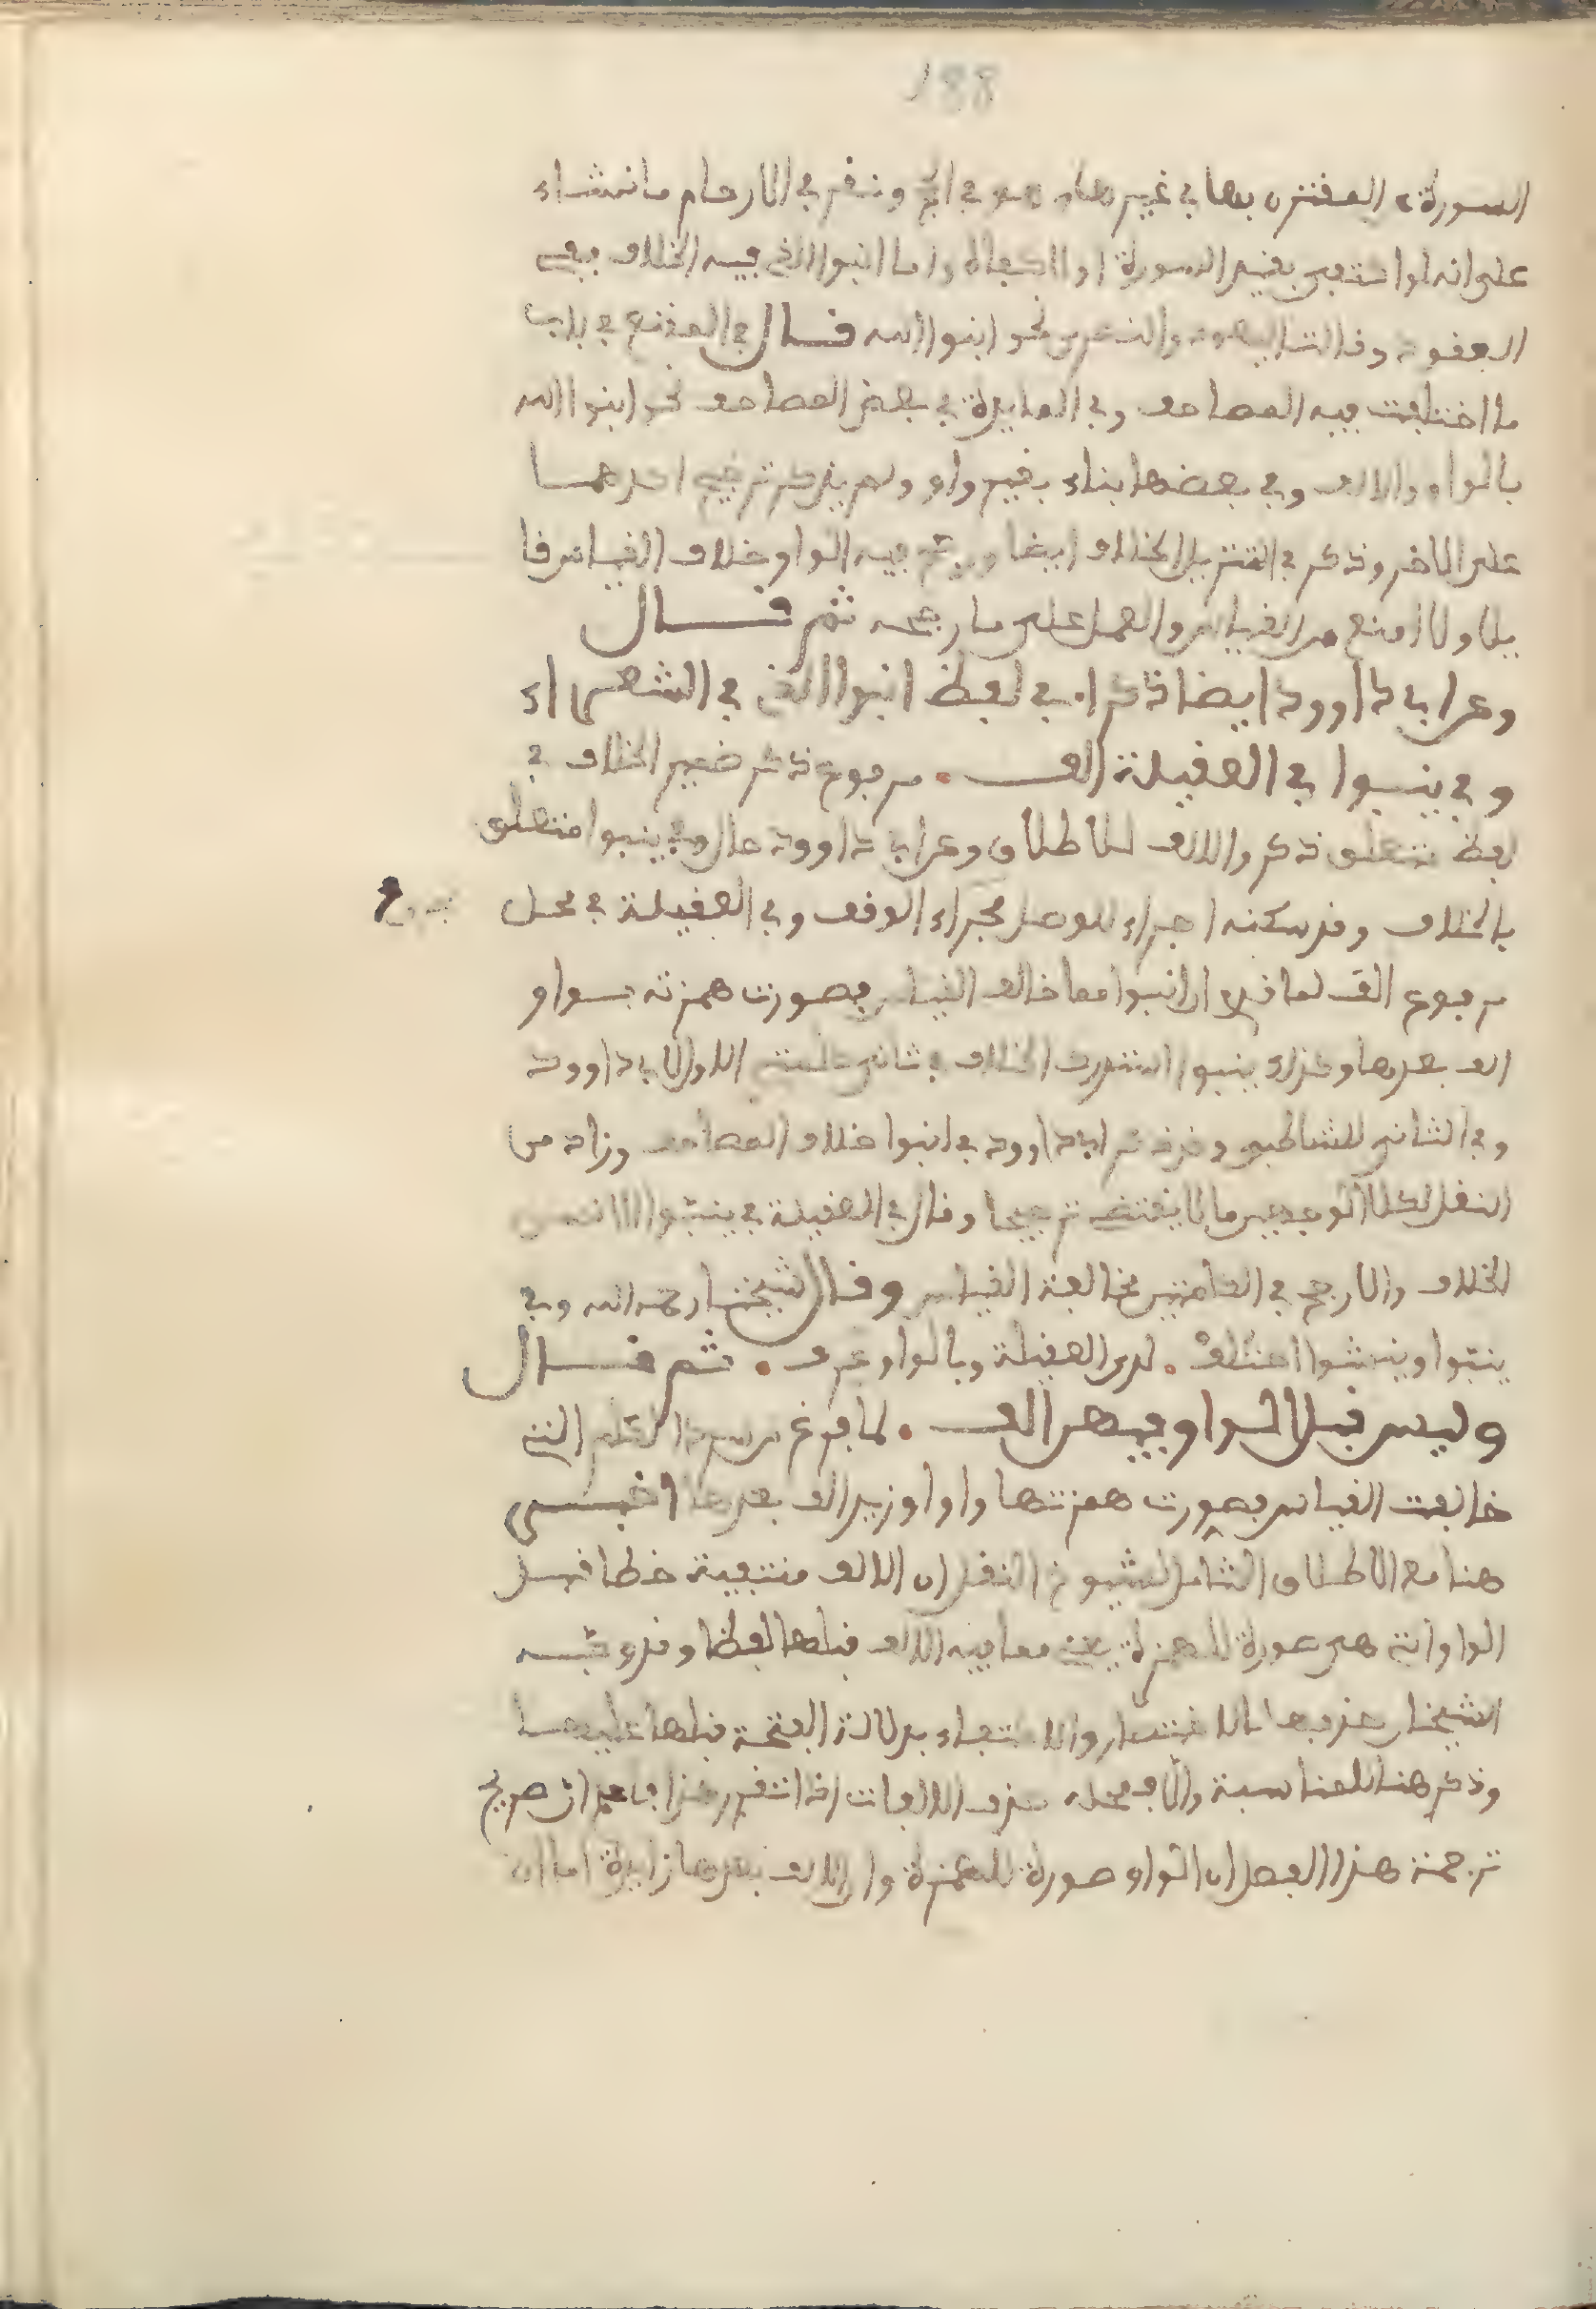 188
السورة المقترن بها في غير هاد هو في الحج ونقر في الارحام ما نشاء
على انه لو استغنى بقيد السورة او الكفاة واما ابنوا الذي فيه الخلاف ففي
العقود وقالت اليهود والنصرى نحو ابنوا الله قال في المقنع في باب
ما اختلفت فيه المصاحف وفي المايدة في بعض المصاحف نحن ابنوا الله
بالواو والالف وفي بعضها ابناء بغير واو ولم يذكر ترجيح احدهما
على الاخر وذكر في التنزيل الخلاف ايضا ورجح فيه الواو خلاف القياس قا
يلا ولا امنع من القياس والعمل على ما رجحه ثم قال
وعن ابي داوود ايضا ذكرا. في لفظ انبوا الذي في الشعراء
وفي ينبوا في العقيلة الف . مرفوع ذكر ضمير الخلاف في
لفظ متعلق ذكر والالف للاطلاق وعن ابي داوود حال وفي ينبوا متعلق
بالخلاف وقد سكنه اجراء للوصل مجراء الوقف وفي العقيلة في محل
مرفوع الف لما ان انبوا مما خالف القياس فصورت همزته بواو
الف بعدها وكذلك ينبوا استدرك الخلاف في ثاني الاول لابي داوود
وفي الثاني للشاطبي وقد ذكر ابو داوود في انبوا خلاف المصاحف وزاد من
النقل لكلا الوجهين ما لا يقتضي ترجيحا وقال في العقيلة في ينبوا الانسن
الخلاف والارجح في الكلمتين مخالفة القياس وقال شيخنا رحمه الله وفي
ينبوا وينشوا اختلف . لدى العقيلة وبالواو عرف . ثم قال
وليس قبل الواو فيهن الف . لما فرغ من سرد الكلم التي
خالفت القياس فصورت همزتها واوا وزيد الف بعدها اخبر
هنا مع الاطلاق الشامل لشيوخ النقل ان الالف منتفية خطا قبل
الواو التي هي صورة للهمزة يعني مما فيه الالف قبلها لفظا وقد وجه
الشيخان حذفها بالاختصار والاكتفاء بدلالة الفتحة قبلها عليها
وذكر هنا للمناسبة والا فمحله حذف الالفات اذا تقرر هذا فاعلم ان صريح
ترجمة هذا الفصل ان الواو صورة للهمزة وان الالف بعدها زايدة اما ان